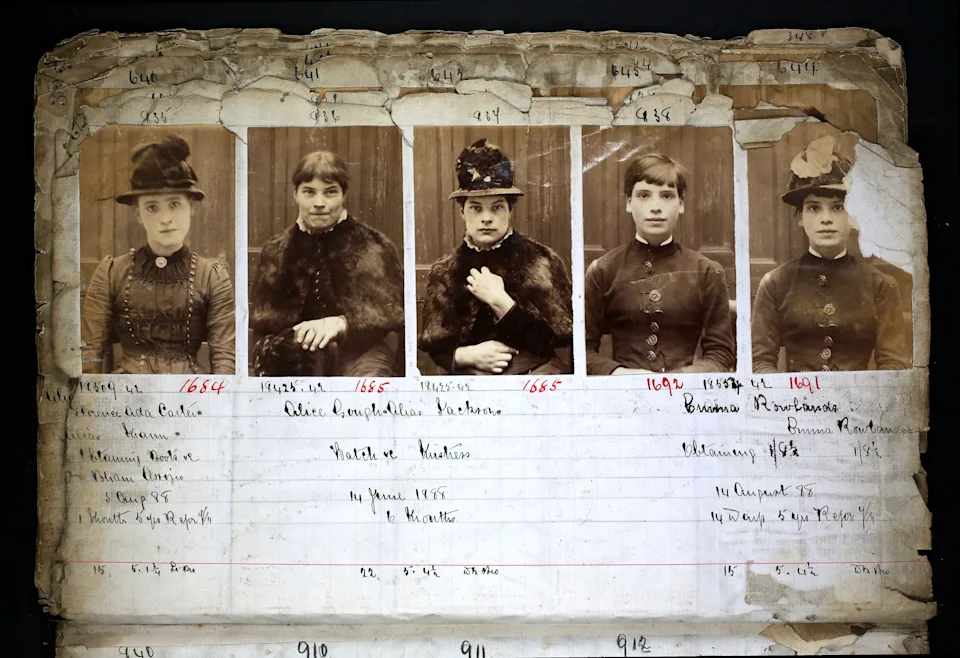 640 641 642 643 44 644
935 936 937 938
18509.42 1684 18425.42 1685 18425.42 1685 1692 18554 42 1691
Florence Ada Carter Alice Gough Alias Jackson Emma Rowlands
Alias Mann Emma Rowlands
Obtaining Boots &c Watch &c Mistress Obtaining 1/8½ 1/8½
5 Aug 88 14 June 1888 14 August 88
1 Month 5 yrs Refor 6 Months 14 Days 5 yrs Refor
15 5.1¼ 22 5.4½ 15 5.4½
940 910 911 912